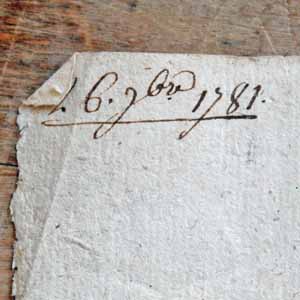 . 6. 7bre 1781.